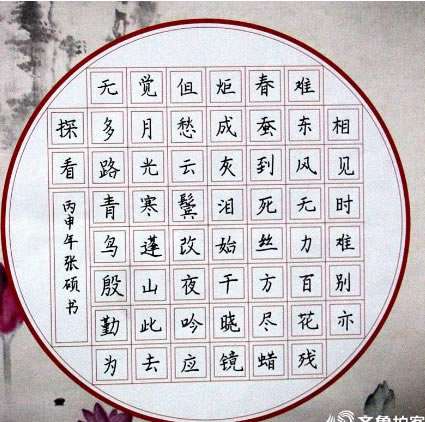 相见时难别亦
难东风无力百花残
春蚕到死丝方尽蜡
炬成灰泪始干晓镜
但愁云鬓改夜吟应
觉月光寒蓬山此去
无多路青鸟殷勤为
探看
丙申年张硕书
齐鲁拍客